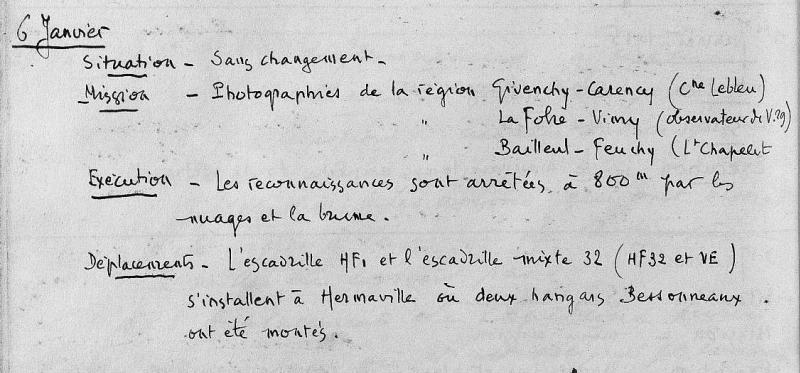 6 Janvier
Situation - Sans changement -
Mission - Photographies de la région Givenchy - Carency (Cne Lebleu)
" La Folie - Vimy (observateur de V.29)
" Bailleul - Feuchy (Lt Chapelet
Exécution - Les reconnaissances sont arrêtées à 800m par les
nuages et la brume.
Déplacements - L'escadrille HF1 et l'escadrille mixte 32 (HF32 et VE)
s'installent à Hermaville où deux hangars Bessonneaux.
ont été montés.